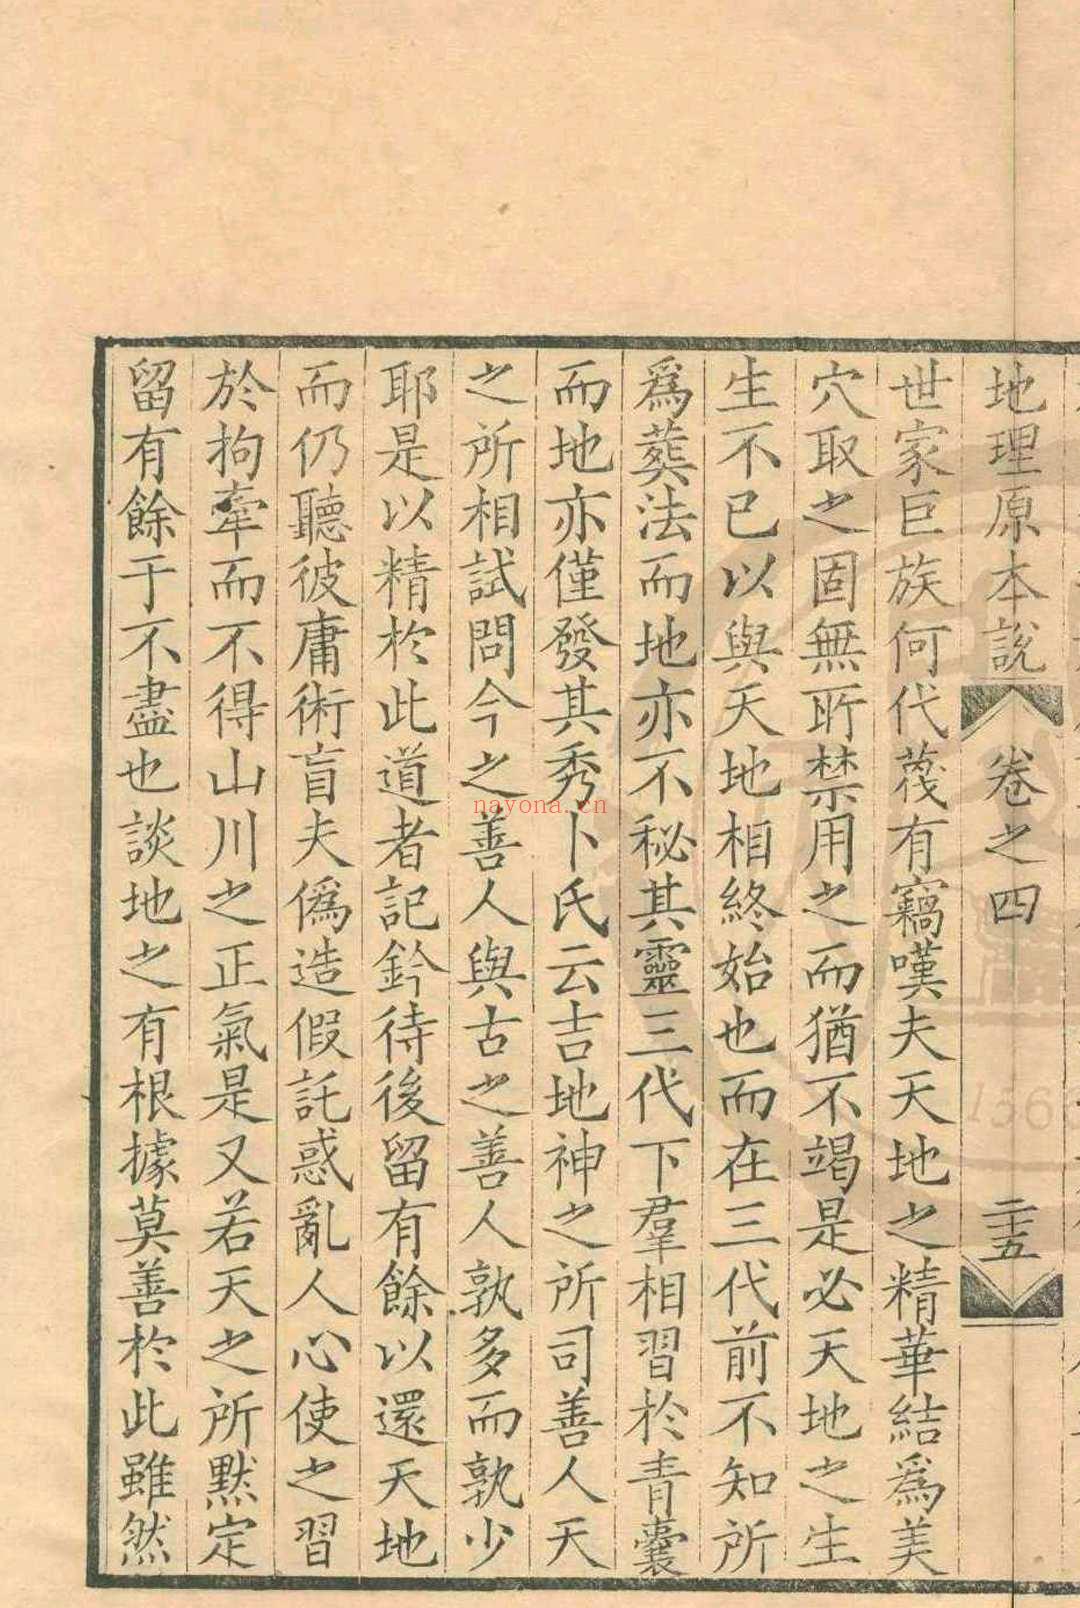 地理原本說 卷之四 二十五
世家巨族何代蔑有竊嘆夫天地之精華結爲美
穴取之固無所禁用之而猶不竭是必天地之生
生不已以與天地相終始也而在三代前不知所
爲葬法而地亦不秘其靈三代下羣相習於青囊
而地亦僅發其秀卜氏云吉地神之所司善人天
之所相試問今之善人與古之善人孰多而孰少
耶是以精於此道者記鈐待後留有餘以還天地
而仍聽彼庸術盲夫僞造假託惑亂人心使之習
於拘牽而不得山川之正氣是又若天之所默定
留有餘于不盡也談地之有根據莫善於此雖然
nayona.cn